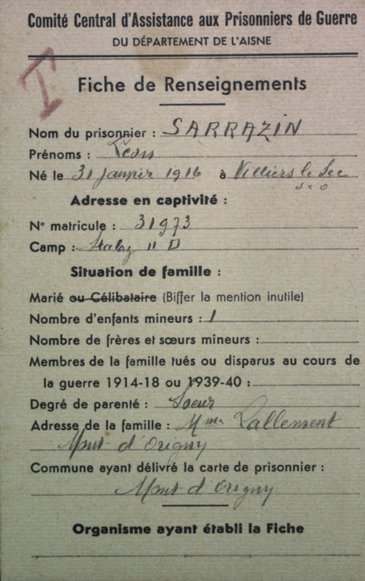 Comité Central d'Assistance aux Prisonniers de Guerre
DU DÉPARTEMENT DE L'AISNE
I
Fiche de Renseignements
Nom du prisonnier : SARRAZIN
Prénoms : Léon
Né le 31 janvier 1916 à Villiers le Sec
S & O
Adresse en captivité :
N° matricule : 31973
Camp : Stalag II D
Situation de famille :
Marié ou Célibataire (Biffer la mention inutile)
Nombre d'enfants mineurs : 1
Nombre de frères et sœurs mineurs :
Membres de la famille tués ou disparus au cours de
la guerre 1914-18 ou 1939-40 :
Degré de parenté : Soeur
Adresse de la famille : Mme Lallement
Mont d'Origny
Commune ayant délivré la carte de prisonnier :
Mont d'Origny
Organisme ayant établi la Fiche